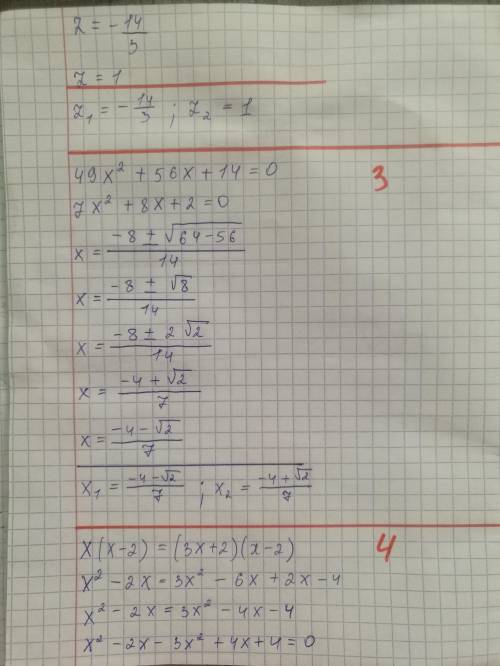 z = -14/3
z = 1
z₁ = -14/3 ; z₂ = 1
49x² + 56x + 14 = 0 3
7x² + 8x + 2 = 0
x = (-8 ± √(64-56))/14
x = (-8 ± √8)/14
x = (-8 ± 2√2)/14
x = (-4 + √2)/7
x = (-4 - √2)/7
x₁ = (-4-√2)/7 ; x₂ = (-4+√2)/7
x(x-2) = (3x+2)(x-2) 4
x² - 2x = 3x² - 6x + 2x - 4
x² - 2x = 3x² - 4x - 4
x² - 2x - 3x² + 4x + 4 = 0